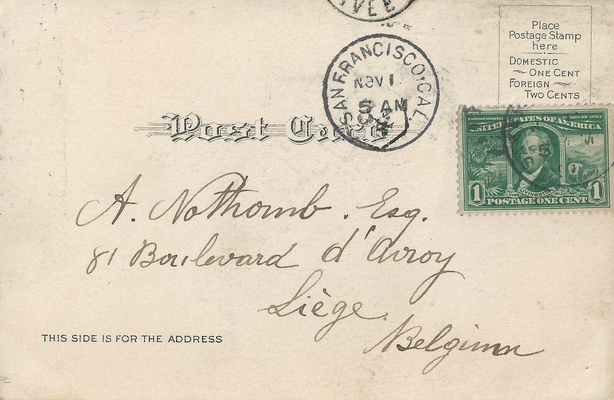 VÉE
Place
Postage Stamp
here
DOMESTIC
ONE CENT
FOREIGN
TWO CENTS
SAN FRANCISCO, CAL.
NOV 1
5 AM
Post Card
UNITED STATES OF AMERICA
1 POSTAGE ONE CENT 1
A. Nothomb. Esq.
81 Boulevard d'Avroy
Liège
Belgium
THIS SIDE IS FOR THE ADDRESS